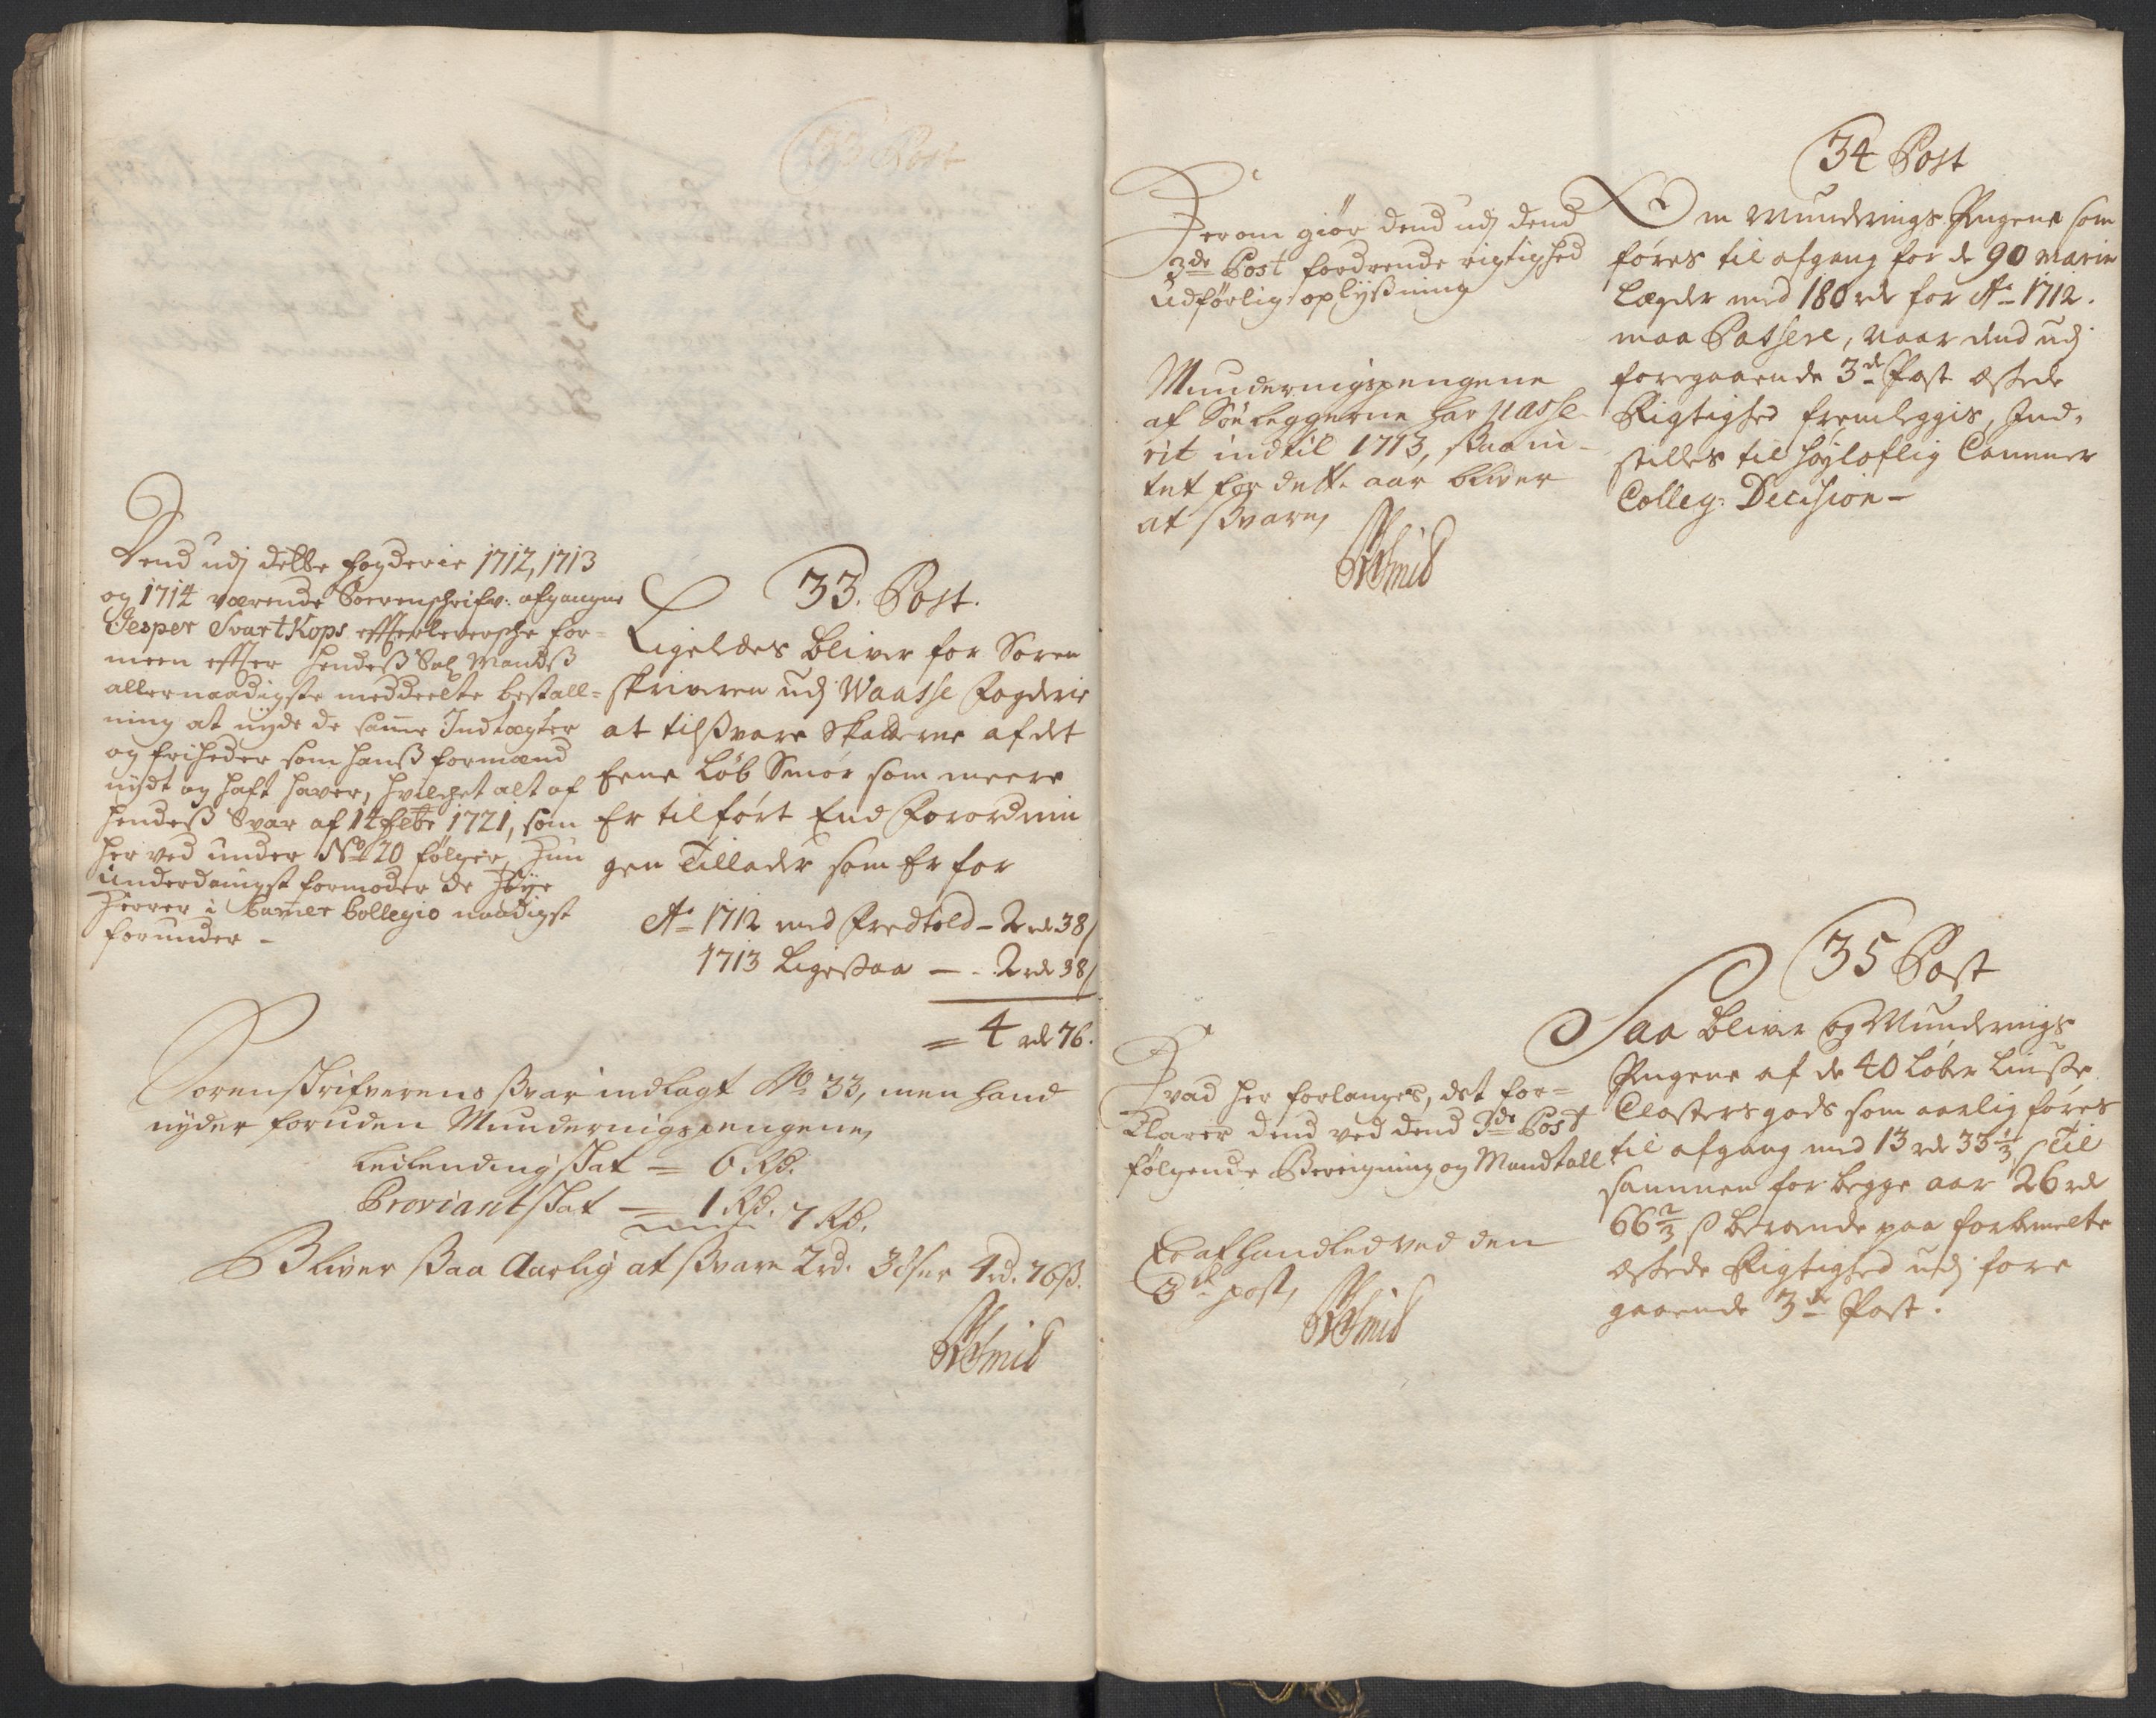 33. Post.
Dend udj dette fogderie 1712, 1713
og 1714 værende Sorenschrifv: afgangne
Jesper Svartkops efterleversche for-
meen efter hendeß Sal Mandß
allernaadigste meddeelte bestall-
ning at nyde de samme Indtægter
og friheder som hanß formænd
nydt og haft haver, hvilchet alt af
hendeß Svar af 14 febr 1721, som
her ved under No 20 følger, hun
underdanigst formoder de høye
Herrer i Camer Collegio naadigst
forunder -
Ligeledes bliver for Soren
skriveren udj Waasse Fogderie
at tilßvare Skatterne af det
Eene Løb Smør som meere
Er tilført End Forordnin
gen Tillader som Er for
Ao 1712 med Fredtold - 2 rd 38 ß
1713 Ligeßaa - - 2 rd 38 ß
= 4 rd 76.
Sorenskrifverens ßvar indlagt No 33, men hand
nyder foruden Munderingspengene,
Leilendingskat = 6 Rd.
Proviantskat - 1 Rd. 7 Rd.
Bliver ßaa Aarlig at ßvare 2 rd. 38 ß er 4 rd. 76 ß.
34 Post
Herom giør dend udj dend
3de Post fordrende rigtighed
udførlig oplyßning
Munderingspengene
af Søeleggerne har passe-
rit indtil 1713, ßaa in-
tet for dette aar bliver
at ßvare,
Om Munderings Pengene som
føres til afgang for de 90 marin
Lægder med 180 rd for Ao 1712.
maa Passere, naar dend udj
foregaaende 3de Post æskede
Rigtighed fremleggis, Ind-
stilles til høyloflig Cammer
Colleg: Decision -
35 Post
Hvad her forlanges, det for-
klarer dend ved dend 3de Post
følgende Beregning og Mandtall
Er afhandled ved den
3de post,
Saa bliver og Munderings
Pengene af de 40 Løber Liuße
Closters gods som aarlig føres
til afgang med 13 rd 33 1/3 ß Til
sammen for begge aar 26 rd
66 2/3 ß beroende paa forbemelte
æskede Rigtighed udj fore
gaaende 3de Post.